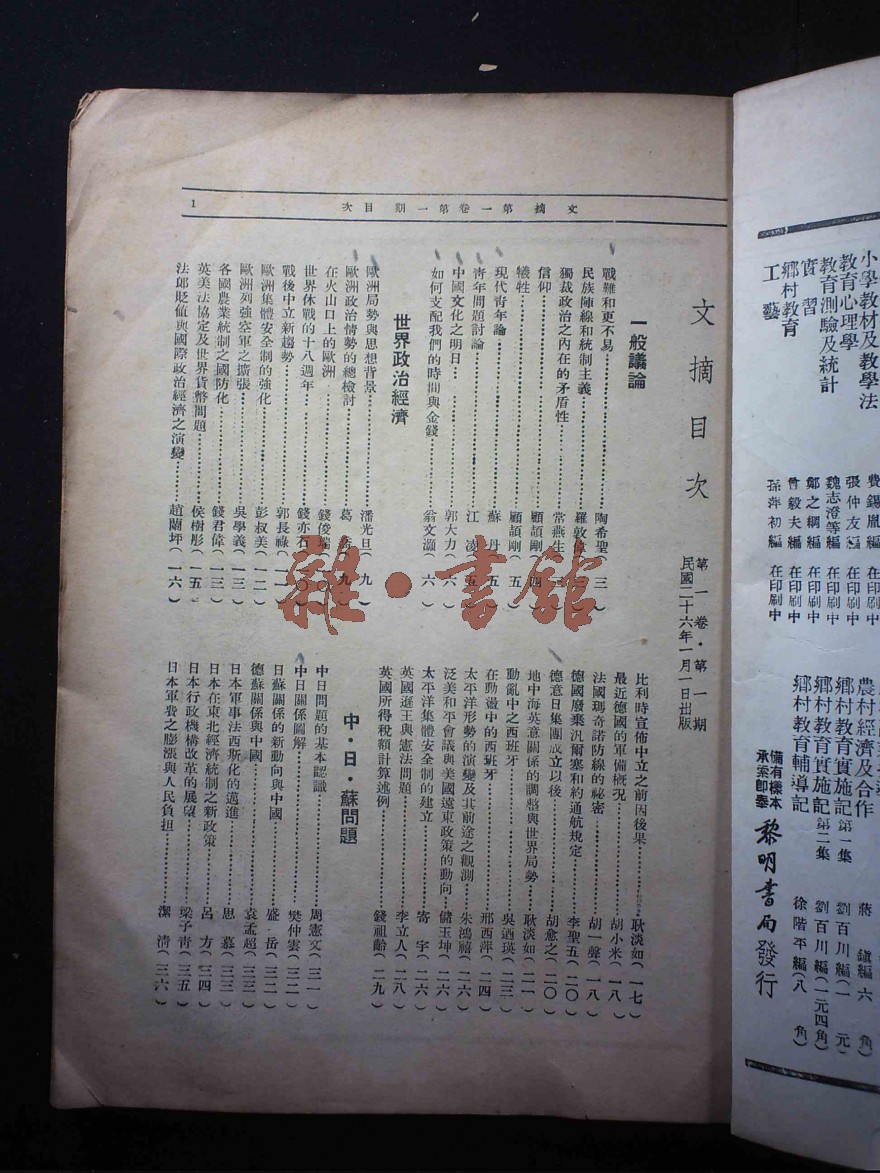 文摘第一卷第一期目次
1
文摘目次
第一卷·第一期
民國二十六年一月一日出版
一般議論
戰難和更不易……陶希聖(三)
民族陣線和統制主義……羅敦偉(三)
獨裁政治之內在的矛盾性……常燕生
信仰……顧頡剛(四)
犧牲……顧頡剛(五)
現代青年論……蘇丹(五)
青年問題討論……江凌(五)
中國文化之明日……郭大力(六)
如何支配我們的時間與金錢……翁文灝(六)
世界政治經濟
歐洲局勢與思想背景……潘光旦(九)
歐洲政治情勢的總檢討……葛喬(九)
在火山口上的歐洲……錢俊瑞
世界休戰的十八週年……錢亦石
戰後中立新趨勢……郭長祿
歐洲集體安全制的強化……彭叔美(一二)
歐洲列強空軍之擴張……吳學義(一三)
各國農業統制之國防化……錢君偉(一三)
英美法協定及世界貨幣問題……侯樹彤(一五)
法郎貶值與國際政治經濟之演變……趙蘭坪(一六)
比利時宣佈中立之前因後果……耿淡如(一七)
最近德國的軍備概況……胡小米(一八)
法國瑪奇諾防線的秘密……胡一聲(一八)
德國廢棄汎爾塞和約通航規定……李聖五(二〇)
德意日集團成立以後……胡愈之(二〇)
地中海英意關係的調整與世界局勢……耿淡如(二一)
動亂中之西班牙……吳迺瑛(二三)
在動盪中的西班牙……邢西萍(二四)
太平洋形勢的演變及其前途之觀測……朱鴻禧(二六)
泛美和平會議與美國遠東政策的動向……儲玉坤(二六)
太平洋集體安全制的建立……寄宇(二六)
英國遜王與憲法問題……李立人(二八)
英國所得稅額計算述例……錢祖齡(二九)
中·日·蘇問題
中日問題的基本認識……周憲文(三一)
中日關係圖解……樊仲雲(三二)
日蘇關係的新動向與中國……盛岳(三二)
德蘇關係與中國……袁孟超(三三)
日本軍事法西斯化的邁進……思慕(三三)
日本在東北經濟統制之新政策……呂方(三四)
日本行政機構改革的展望……梁子青(三五)
日本軍費之膨漲與人民負担……潔清(三六)
雜·書館
小學教材及教學法 費錫胤編 在印刷中
教育心理學 張仲友編 在印刷中
教育測驗及統計 魏志澄等編 在印刷中
實習 鄭之綱編 在印刷中
鄉村教育 曾毅夫編 在印刷中
工藝 孫萍初編 在印刷中
農村經濟及合作 蔣鎮編 六角)
鄉村教育實施記第一集 劉百川編(一元)
鄉村教育實施記第二集 劉百川編(一元四角)
鄉村教育輔導記 徐階平編(八角)
備有樣本
承索即奉
黎明書局發行